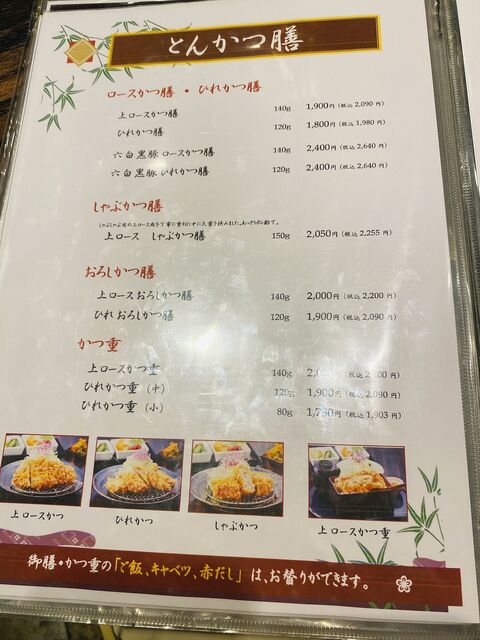 とんかつ膳
ロースかつ膳・ひれかつ膳
上ロースかつ膳 140g 1,900円(税込 2,090 円)
ひれかつ膳 120g 1,800円(税込 1,980 円)
六白黒豚 ロースかつ膳 140g 2,400円(税込 2,640 円)
六白黒豚 ひれかつ膳 120g 2,400円(税込 2,640 円)
しゃぶかつ膳
しゃぶしゃぶ用の上ロース肉を丁寧に重ねた中に大葉を挟みました。あっさりポン酢で。
上ロース しゃぶかつ膳 150g 2,050円(税込 2,255 円)
おろしかつ膳
上ロースおろしかつ膳 140g 2,000円(税込 2,200 円)
ひれ おろしかつ膳 120g 1,900円(税込 2,090 円)
かつ重
上ロースかつ重 140g 円(税込 円)
ひれかつ重(中) 120g 1,900円(税込 2,090 円)
ひれかつ重(小) 80g 円(税込 1,903 円)
上ロースかつ
ひれかつ
しゃぶかつ
上ロースかつ重
御膳・かつ重の「ご飯、キャベツ、赤だし」は、お替りができます。